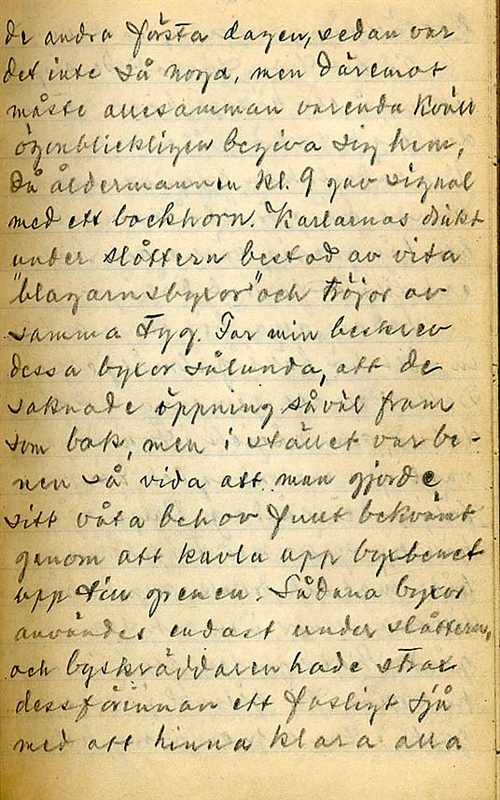 de andra första dagen, sedan var
det inte så noga, men däremot
måste allesamman varenda kväll
ögenblickligen begiva sig hem,
då åldermannen kl. 9 gav signal
med ett bockhorn. Karlarnas dräkt
under slåttern bestod av vita
"blagarnsbyxor" och tröjor av
samma tyg. Far min beskrev
dessa byxor sålunda, att de
saknade öppning såväl fram
som bak, men i stället var be-
nen så vida att man gjorde
sitt våta behov fullt bekvämt
genom att kavla upp byxbenet
upp till grenen. Sådana byxor
användes endast under slåttern,
och byskräddaren hade strax
dessförinnan ett fasligt sjå
med att hinna klara alla